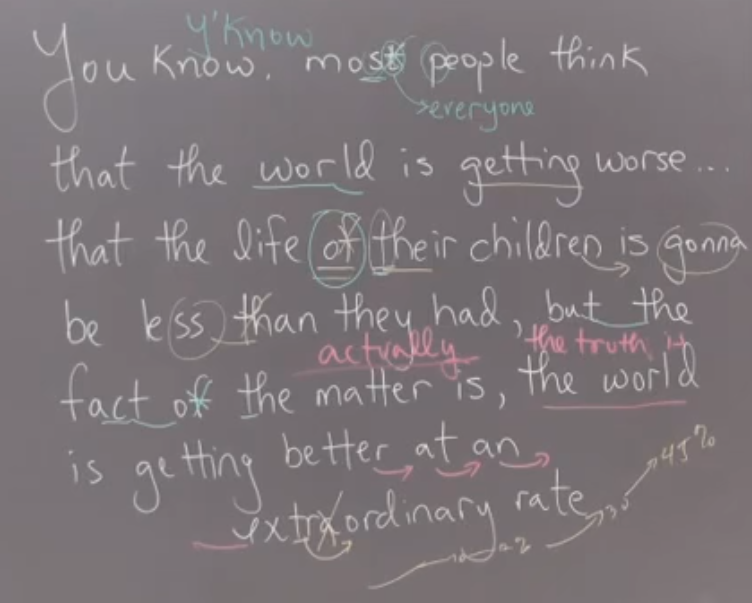 y'know
You know, most people think
everyone
that the world is getting worse...
that the life of their children is gonna
be less than they had, but the
actually the truth is
fact of the matter is, the world
is getting better at an
extraordinary rate
45%